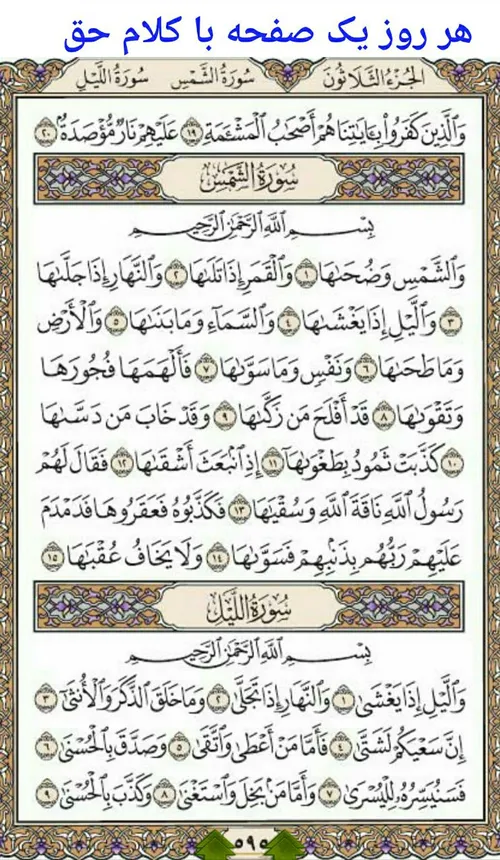 هر روز یک صفحه با کلام حق
الجُزءُ الثَّلَاثُونَ سُورَةُ الشَّمْسِ سُورَةُ اللَّيْلِ
وَٱلَّذِينَ كَفَرُوا۟ بِـَٔايَـٰتِنَا هُمْ أَصْحَـٰبُ ٱلْمَشْـَٔمَةِ ١٩ عَلَيْهِمْ نَارٌ مُّؤْصَدَةٌۢ ٢٠
سُورَةُ الشَّمْسِ
بِسْمِ ٱللَّهِ ٱلرَّحْمَـٰنِ ٱلرَّحِيمِ
وَٱلشَّمْسِ وَضُحَىٰهَا ١ وَٱلْقَمَرِ إِذَا تَلَىٰهَا ٢ وَٱلنَّهَارِ إِذَا جَلَّىٰهَا
٣ وَٱلَّيْلِ إِذَا يَغْشَىٰهَا ٤ وَٱلسَّمَآءِ وَمَا بَنَىٰهَا ٥ وَٱلْأَرْضِ
وَمَا طَحَىٰهَا ٦ وَنَفْسٍ وَمَا سَوَّىٰهَا ٧ فَأَلْهَمَهَا فُجُورَهَا
وَتَقْوَىٰهَا ٨ قَدْ أَفْلَحَ مَن زَكَّىٰهَا ٩ وَقَدْ خَابَ مَن دَسَّىٰهَا
١٠ كَذَّبَتْ ثَمُودُ بِطَغْوَىٰهَآ ١١ إِذِ ٱنۢبَعَثَ أَشْقَىٰهَا ١٢ فَقَالَ لَهُمْ
رَسُولُ ٱللَّهِ نَاقَةَ ٱللَّهِ وَسُقْيَـٰهَا ١٣ فَكَذَّبُوهُ فَعَقَرُوهَا فَدَمْدَمَ
عَلَيْهِمْ رَبُّهُم بِذَنۢبِهِمْ فَسَوَّىٰهَا ١٤ وَلَا يَخَافُ عُقْبَـٰهَا ١٥
سُورَةُ اللَّيْلِ
بِسْمِ ٱللَّهِ ٱلرَّحْمَـٰنِ ٱلرَّحِيمِ
وَٱلَّيْلِ إِذَا يَغْشَىٰ ١ وَٱلنَّهَارِ إِذَا تَجَلَّىٰ ٢ وَمَا خَلَقَ ٱلذَّكَرَ وَٱلْأُنثَىٰٓ ٣
إِنَّ سَعْيَكُمْ لَشَتَّىٰ ٤ فَأَمَّا مَنْ أَعْطَىٰ وَٱتَّقَىٰ ٥ وَصَدَّقَ بِٱلْحُسْنَىٰ ٦
فَسَنُيَسِّرُهُۥ لِلْيُسْرَىٰ ٧ وَأَمَّا مَنۢ بَخِلَ وَٱسْتَغْنَىٰ ٨ وَكَذَّبَ بِٱلْحُسْنَىٰ ٩
٥٩٥